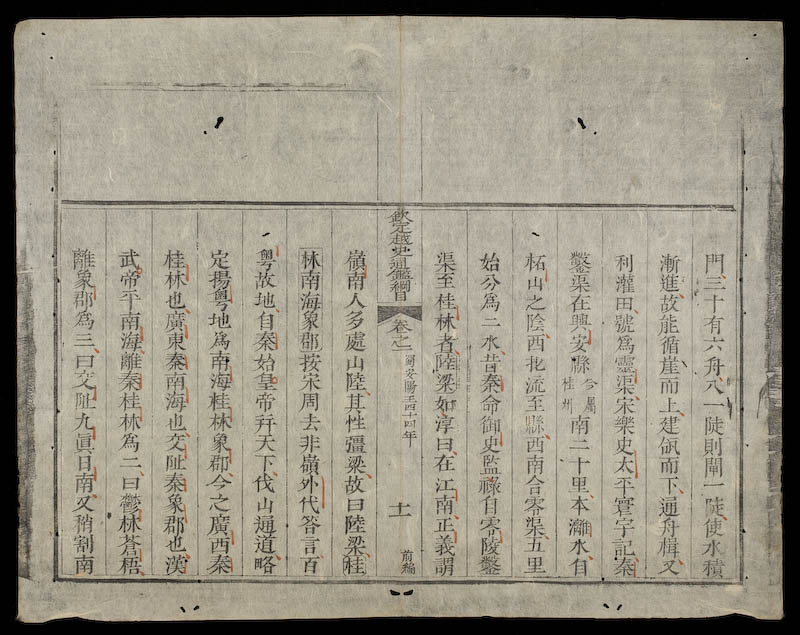 門三十有六舟入一陡則閘一陡使水積
漸進故能循崖而上建瓴而下通舟楫又
利灌田號爲靈渠宋樂史太平寰宇記秦
鑿渠在興安縣今屬桂州南二十里本灕水自
柘山之陰西北流至縣西南合零渠五里
始分爲二水昔秦命御史監祿自零陵鑿
渠至桂林者陸梁如淳曰在江南正義謂
欽定越史通鑑綱目 卷之一 蜀安陽王四十四年 十一 前編
嶺南人多處山陸其性彊梁故曰陸梁桂
林南海象郡按宋周去非嶺外代答言百
粵故地自秦始皇帝幷天下伐山通道略
定揚粵地爲南海桂林象郡今之廣西秦
桂林也廣東秦南海也交阯秦象郡也漢
武帝平南海離秦桂林爲二曰鬱林蒼梧
離象郡爲三曰交阯九眞日南又稍割南